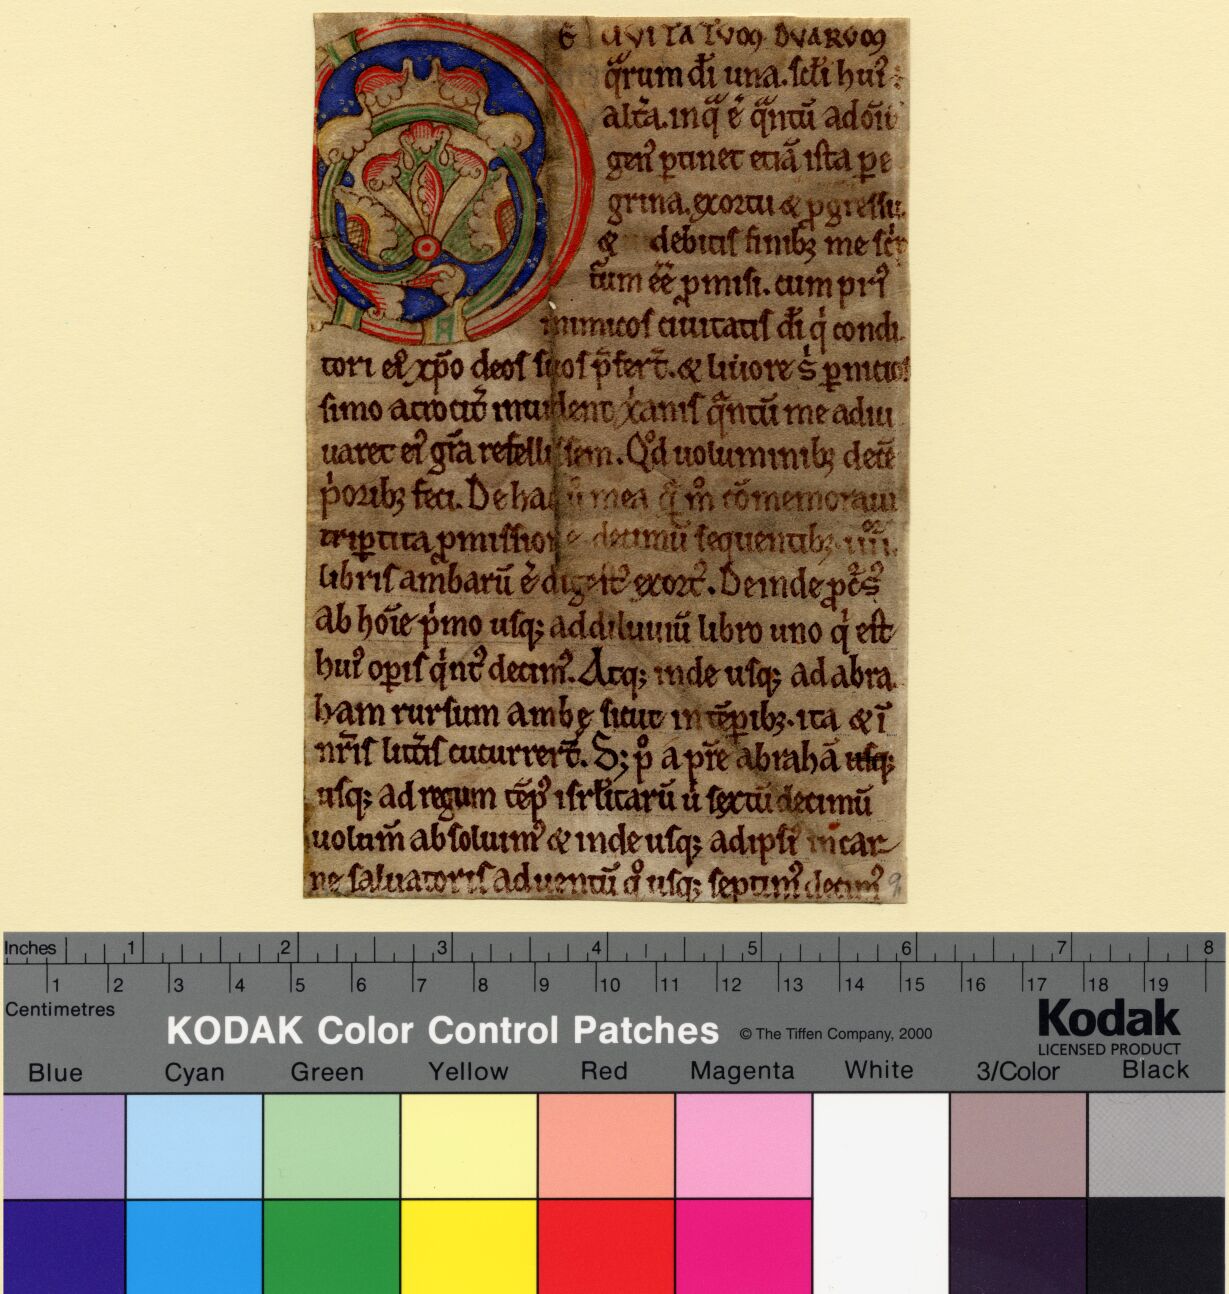 E CIVITATUM DUARUM
q̄rum dī una. sc̄li hui᷒
alt̄a. inq̄ ē q̄ntū ad om̄
gen᷒ ꝑtinet etiā ista ꝑe
grina. exortu & ꝓgressu.
& debitis finibꝫ me sc̄r
tūm ēē ꝓmisi. cum pri᷒
inimicos ciuitatis dī q̇ condi
tori ei᷒ xp̄o deos suos p̄fert̄. & liuore ṡ ꝑnicios
simo atrocit̄ inuident xānis q̄ntū me adiu
uaret ei᷒ gr̄a refellissem. Qd̊ uoluminibꝫ decē
ṗoribꝫ feci. De hac ū mea q̄ m̊ cōmemoraui
triꝑtita ꝓmissione decimū sequentibꝫ. iiii.
libris ambarū ē digest᷒ exort᷒. Deinde ꝓc̄s᷒
ab hoīe ṗmo usqꝫ addiluuiū libro uno q̇ est
hui᷒ oꝑis q̇nt᷒ decim᷒. Atqꝫ inde usqꝫ ad abra
ham rursum ambę sicut in tēꝑibꝫ. ita & ī
nr̄is litt̄is cucurrert̄. Sꝫ p̊ a pr̄e abrahā usqꝫ
usqꝫ ad regum tēp᷒ isrl̄itarū ū sextū decimū
uolum̄ absoluim᷒ & inde usqꝫ adipsi᷒ incar
ne saluatoris aduentū q̊ usqꝫ septim᷒ decim᷒
9
Inches 1 2 3 4 5 6 7 8
1 2 3 4 5 6 7 8 9 10 11 12 13 14 15 16 17 18 19
Centimetres
KODAK Color Control Patches © The Tiffen Company, 2000 Kodak
LICENSED PRODUCT
Blue Cyan Green Yellow Red Magenta White 3/Color Black